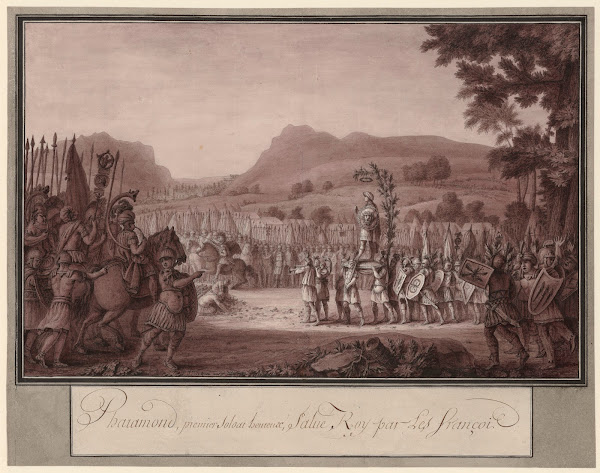 Pharamond, premier Soldat heureux, Salué Roy par Les françois.